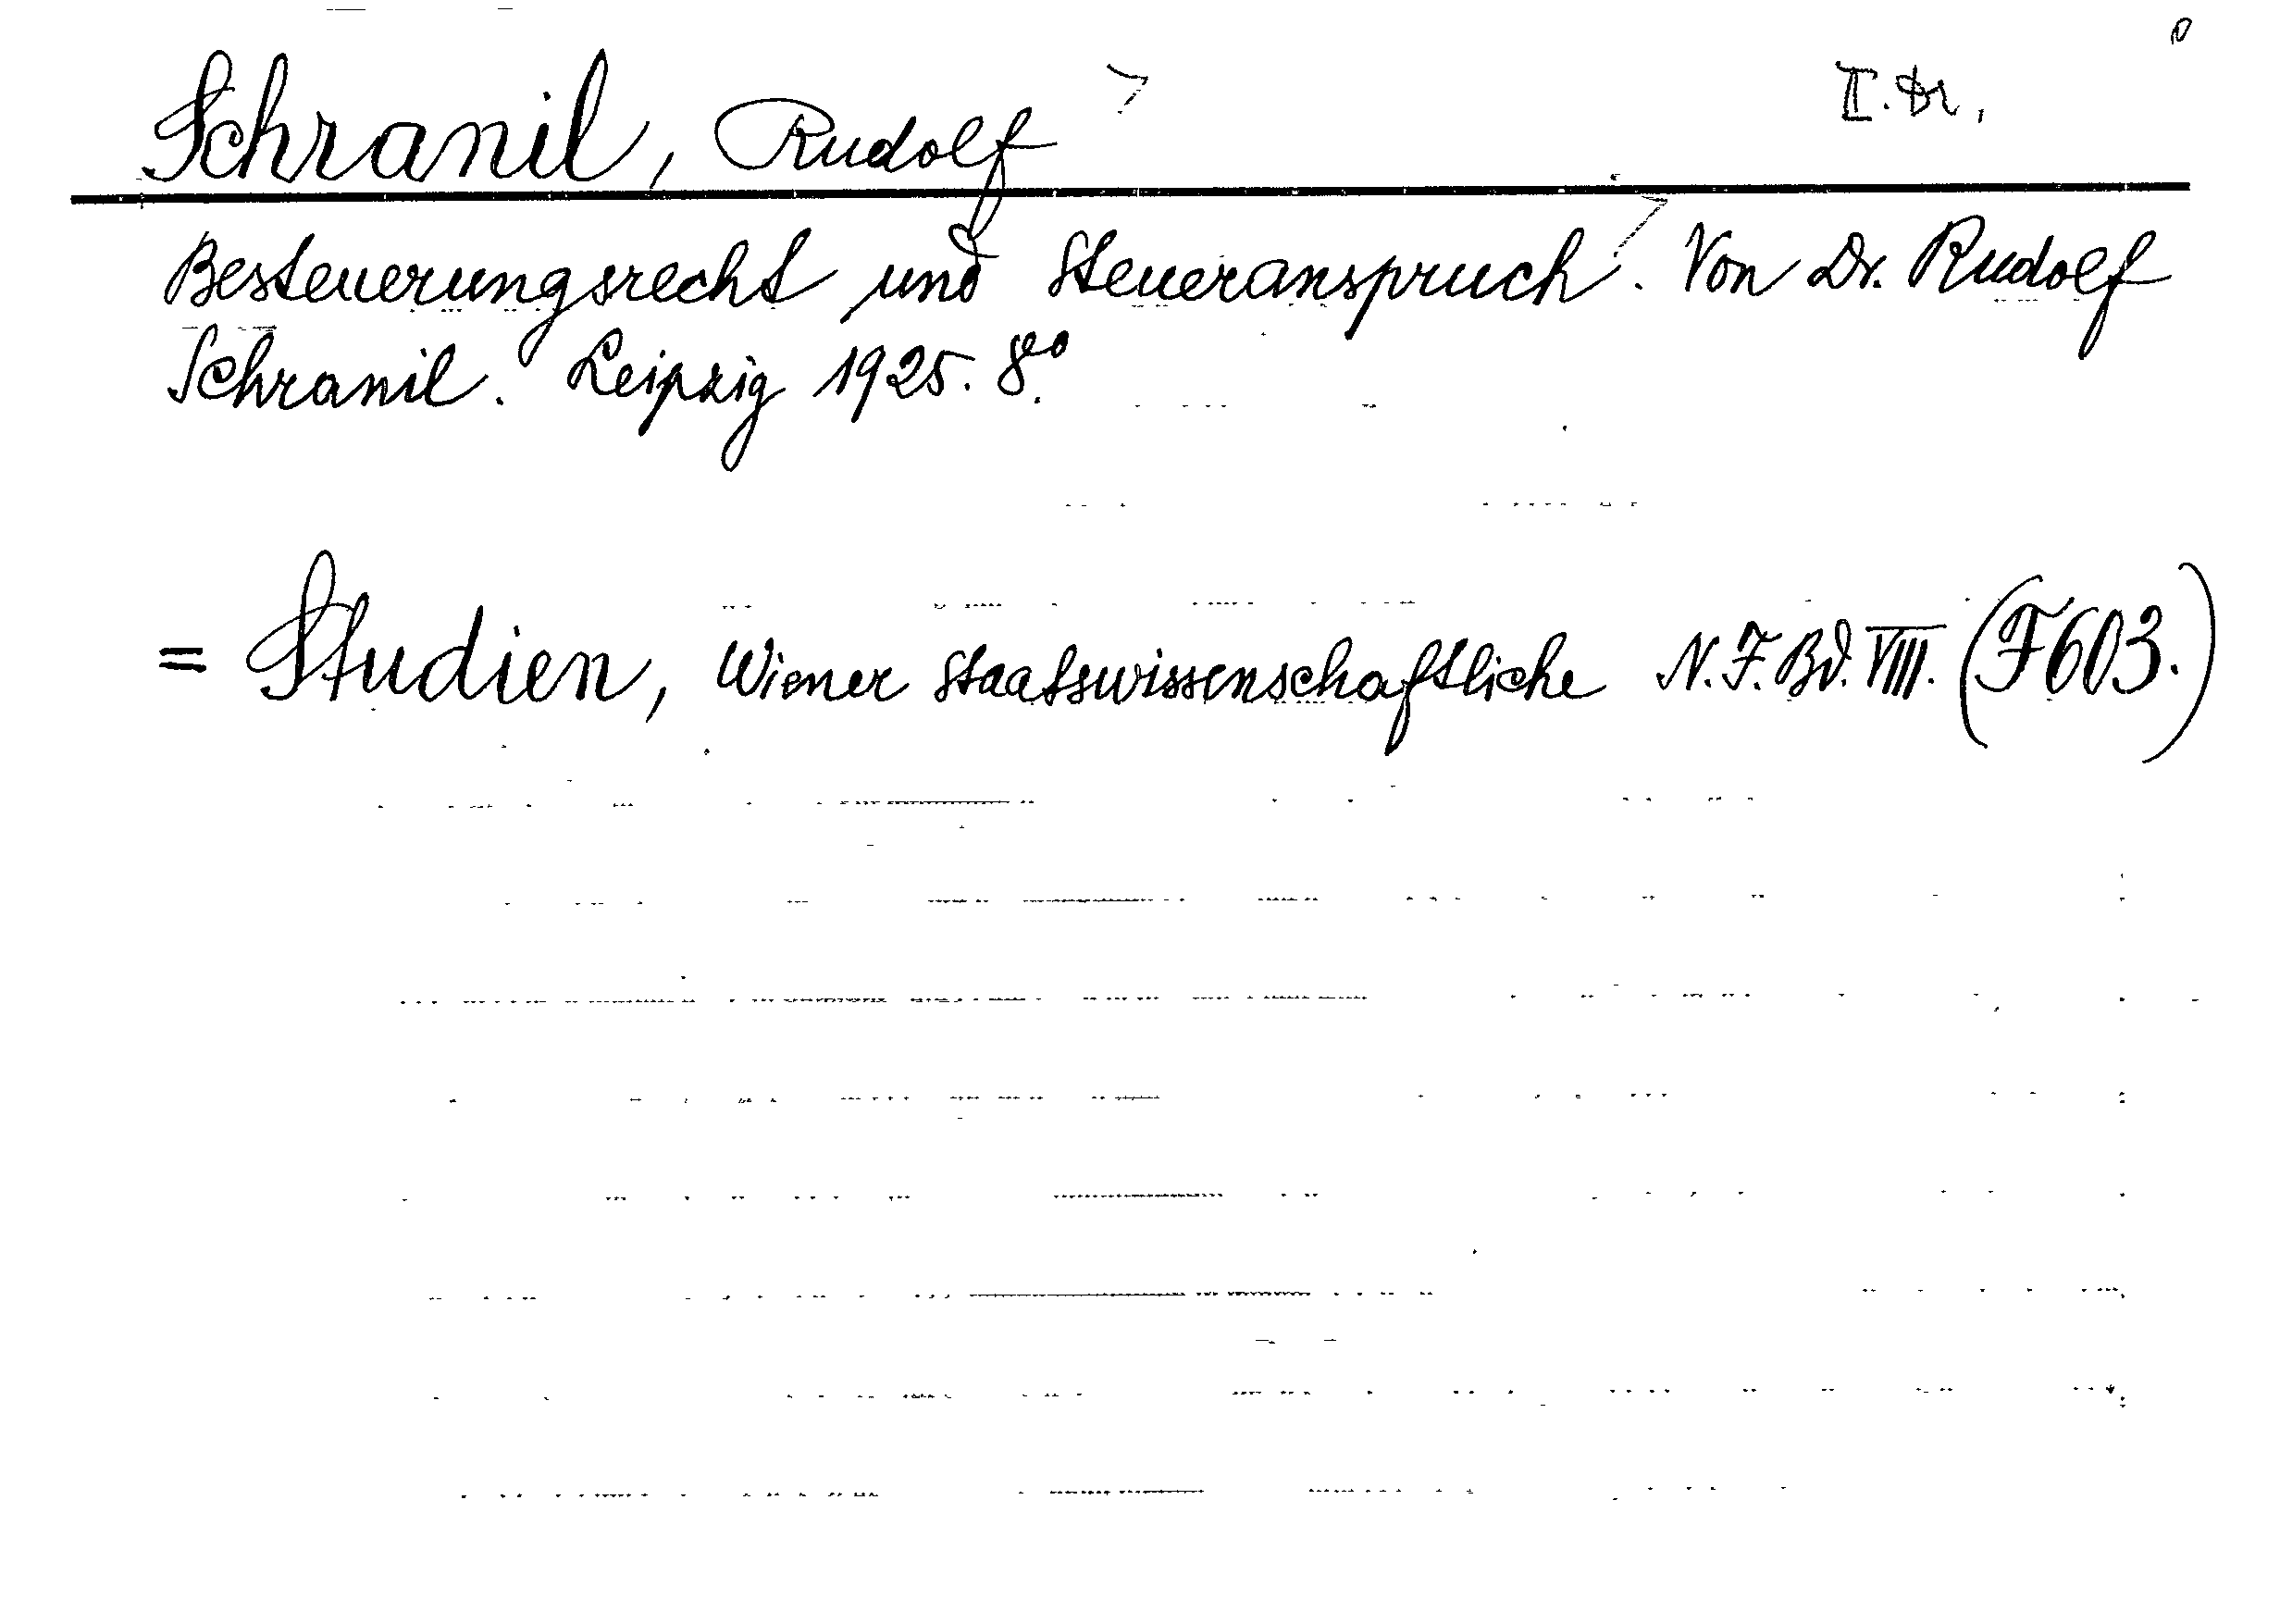 Schranil, Rudolf
Besteuerungsrecht und Steueranspruch. Von Dr. Rudolf
Schranil. Leipzig 1925. 8º.
= Studien, Wiener Staatswissenschaftliche N.F. Bd. VIII. (F603.)